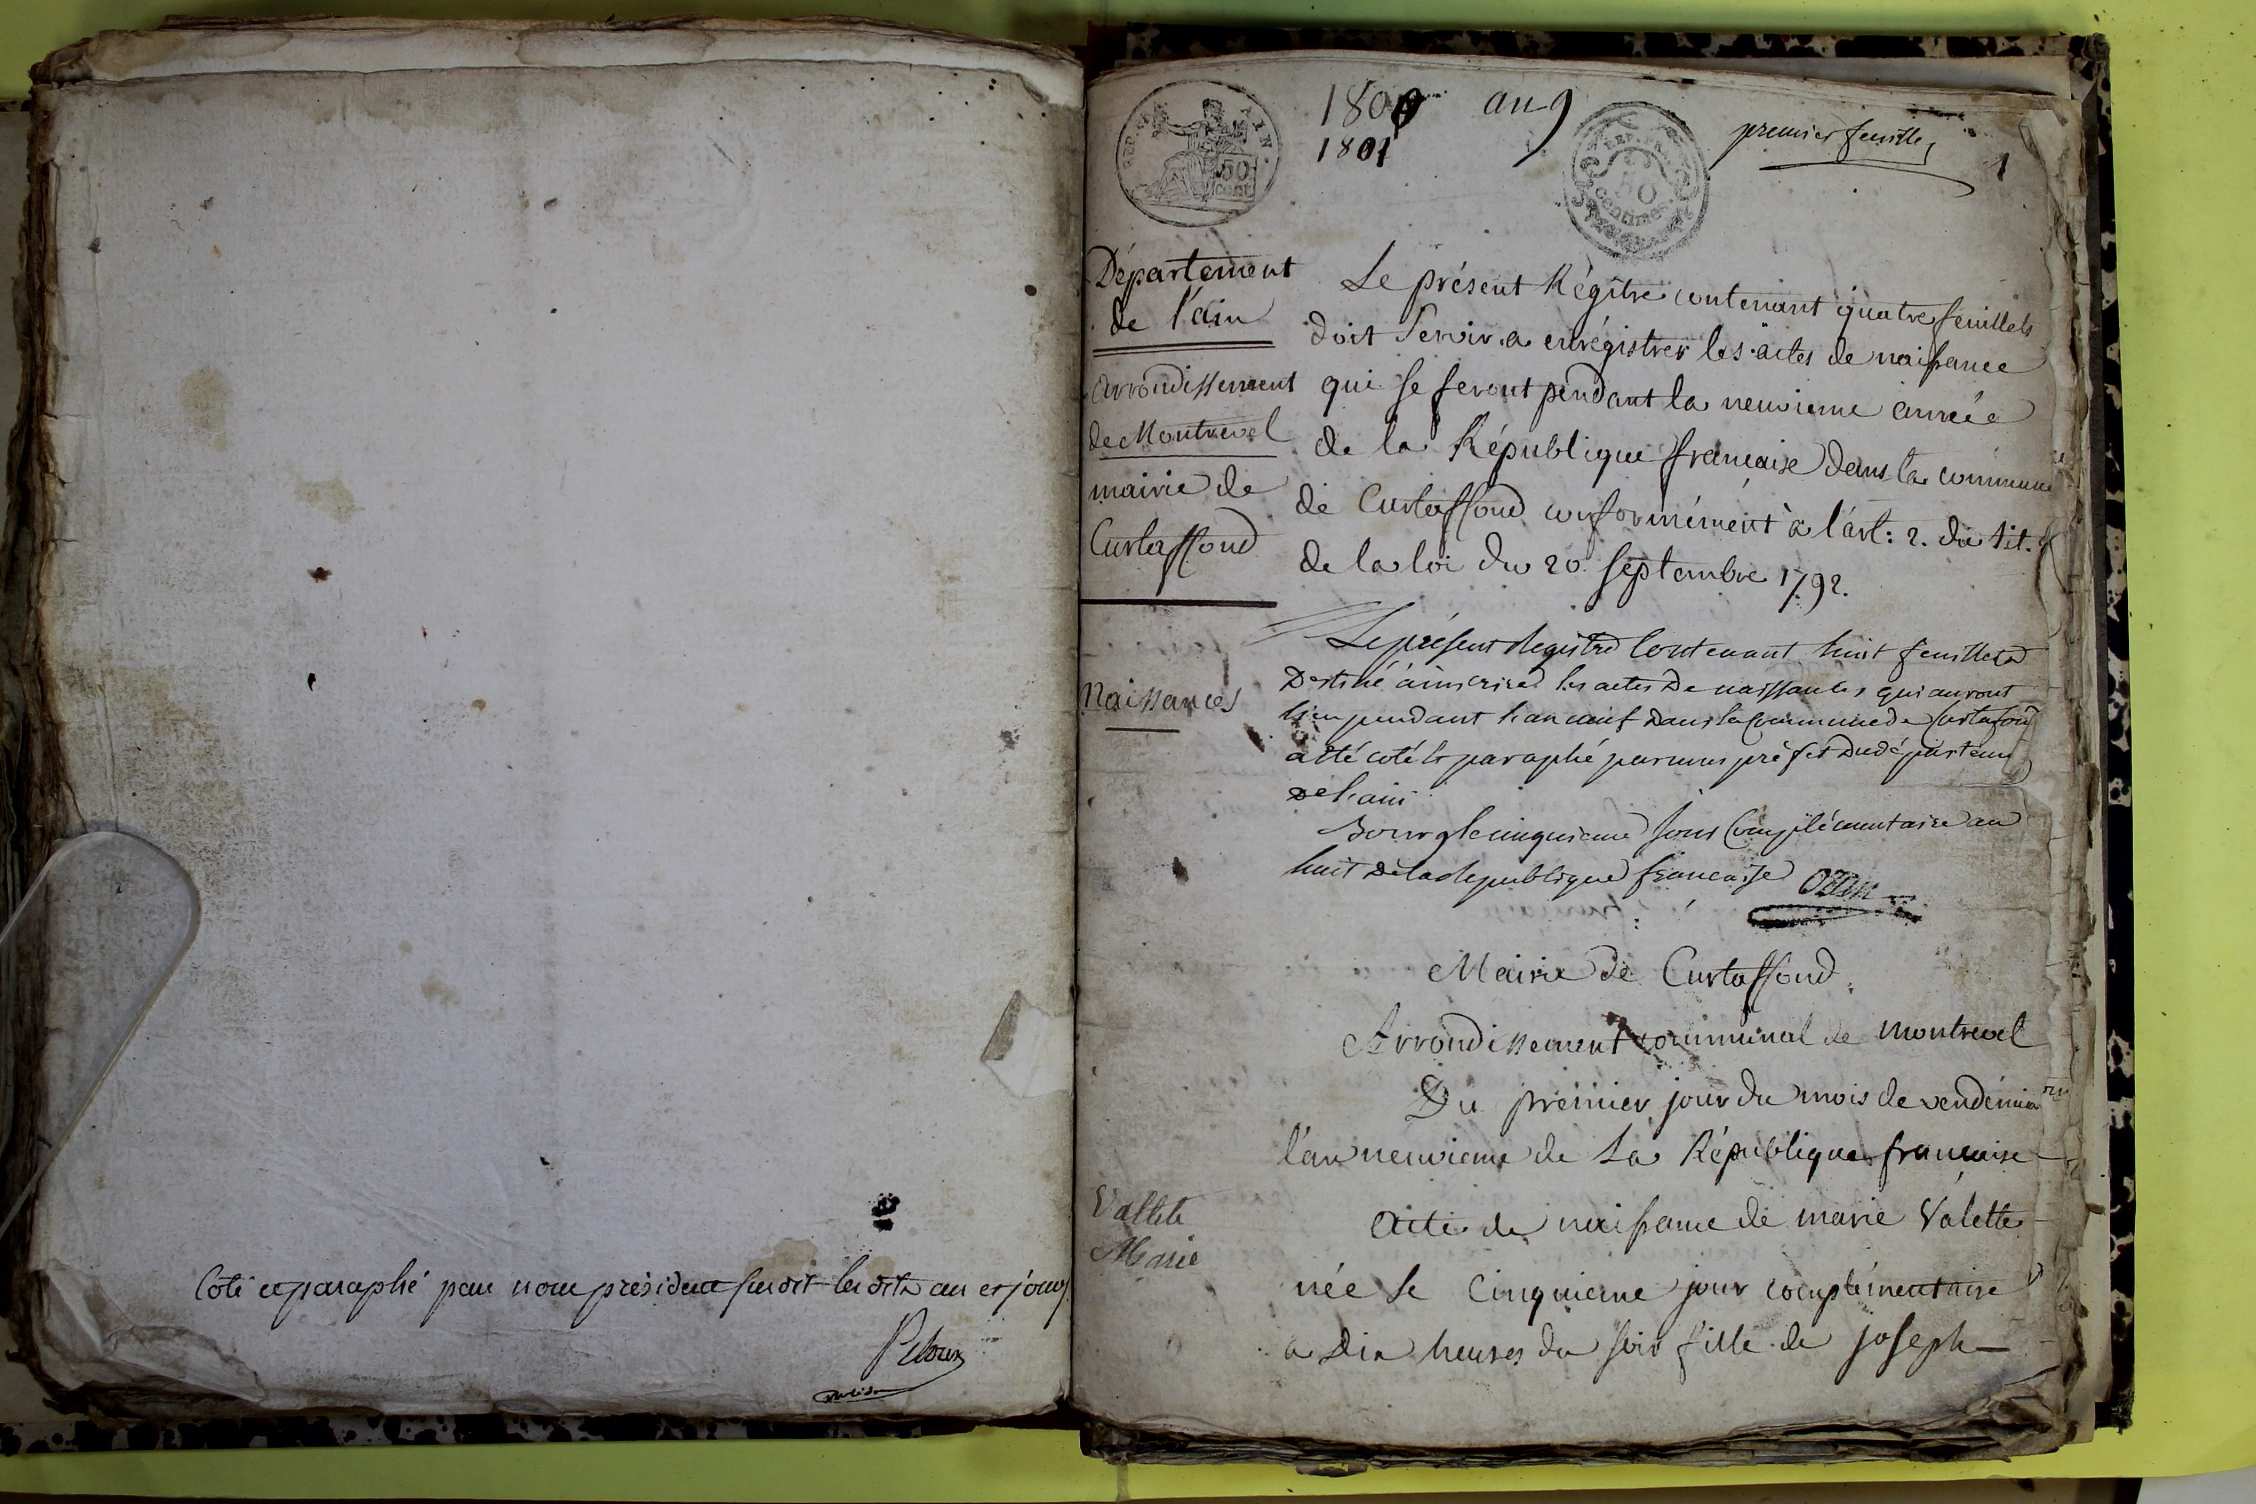 Coté et paraphé par nous président susdit les dits an et jour
1800 an 9
1801
premier feuille
1
AIN
50
REP. FRA.
50
centimes
Département
de l'ain
arrondissement
de Montrevel
mairie de
Curtaffond
Naissances
Le présent Régitre contenant quatre feuillets
doit Servir a enrégistrer les actes de naissance
qui se feront pendant la neuvieme année
de la République française dans la commune
de Curtaffond conformément à l'art: 2. du tit.
de la loi du 20 septembre 1792.
Le présent Registre Contenant huit feuillets
Destiné à inscrire les actes De naissances qui auront
lieu pendant l'an neuf Dans la Commune de Curtafond
a été coté & paraphé par nous préfet Du département
De l'ain
Bourg le cinquieme Jour Complémentaire an
huit De la Republique française Ozun
Mairie de Curtaffond
Arrondissement communal de montrevel
Du premier jour du mois de vendémiaire
l'an neuvieme de La République francaise
Vallete
Marie
Acte de naissance de marie Valette
née le Cinquieme jour complémentaire
a Dix heures du soir fille de joseph